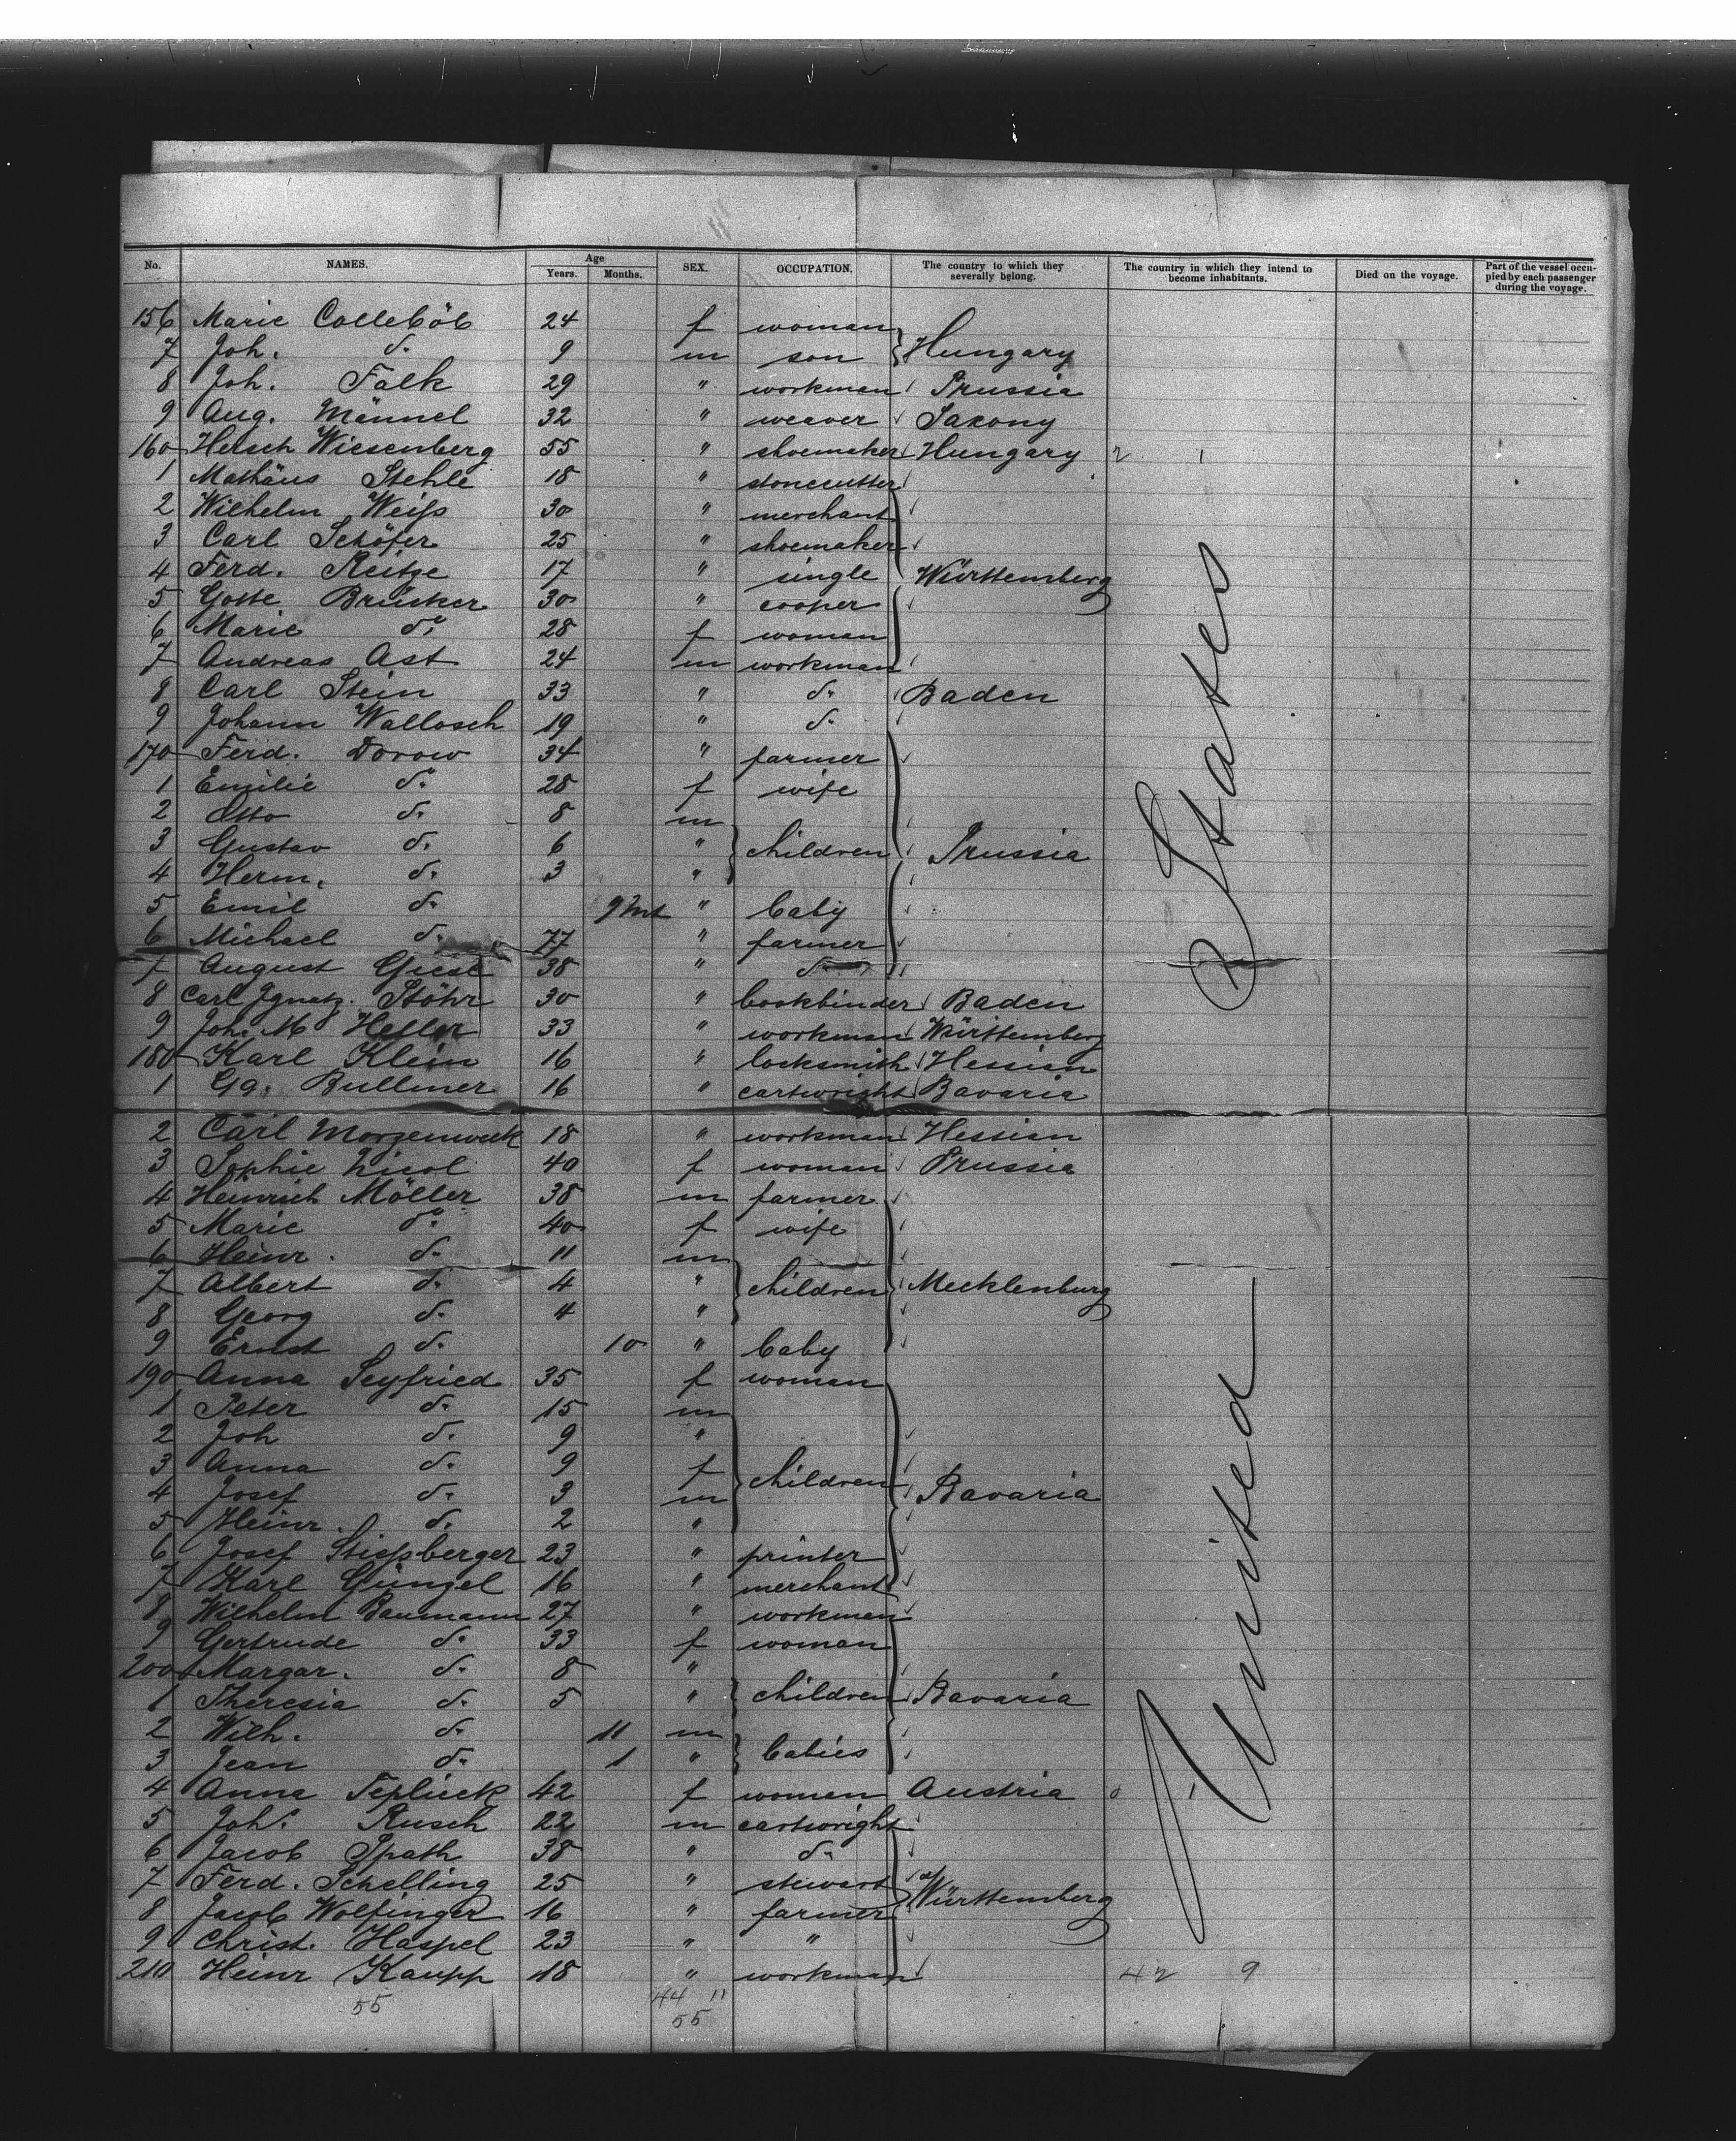 No. NAMES. Age Years. Months. SEX. OCCUPATION. The country to which they severally belong. The country in which they intend to become inhabitants. Died on the voyage. Part of the vessel occupied by each passenger during the voyage.
156 Marie 24 f woman
7 Joh. do. 9 m son Hungary
8 Joh. Falk 29 " workman Prussia
9 Aug. Männel 32 " weaver Saxony
160 Hersch Wiesenberg 55 " shoemaker Hungary
1 Mathäus Stehle 18 " stonecutter
2 Wilhelm Weiſs 30 " merchant
3 Carl Schöfer 25 " shoemaker
4 Ferd. Reitze 17 " single Württemberg
5 Gotte Brücker 30 " cooper
6 Marie do. 28 f woman
7 Andreas Ast 24 m workman
8 Carl Stein 33 " do. Baden
9 Johann Wallosch 19 " do.
170 Ferd. Dorow 34 " farmer
1 Emilie do. 28 f wife
2 Otto do. 8 m
3 Gustav do. 6 " children Prussia
4 Herm. do. 3 "
5 Emil do. 9 Mt " baby
6 Michael do. 77 " farmer
7 August Giese 38 " do.
8 Carl Ignatz Stöhr 30 " bookbinder Baden
9 Joh. M. Heller 33 " workman Württemberg
180 Karl Klein 16 " locksmith Hessian
1 Gg. Bullmer 16 " cartwright Bavaria
2 Carl Morgenweck 18 " workman Hessian
3 Sophie Nicol 40 f woman Prussia
4 Heinrich Möller 38 m farmer
5 Marie do. 40 f wife
6 Heinr. do. 11 m
7 Albert do. 4 " children Mecklenburg
8 Georg do. 4 "
9 Ernst do. 10 " baby
190 Anna Seyfried 35 f woman
1 Peter do. 15 m
2 Joh do. 9 "
3 Anna do. 9 f children
4 Josef do. 3 m Bavaria
5 Heinr. do. 2 "
6 Josef Stiſsberger 23 " printer
7 Karl Güngel 16 " merchant
8 Wilhelm Baumann 27 " workman
9 Gertrude do. 33 f woman
200 Margar. do. 8 "
1 Theresia do. 5 " children Bavaria
2 Wilh. do. 11 m
3 Jean do. 1 " babies
4 Anna 42 f woman Austria
5 Joh. Rusch 22 m cartwright
6 Jacob Spath 38 " do.
7 Ferd. Schelling 25 " stewart Württemberg
8 Jacob Wolfinger 16 " farmer
9 Christ. Haspel 23 " "
210 Heinr Kaupp 18 " workman 42 9
55 44 11
55
United States